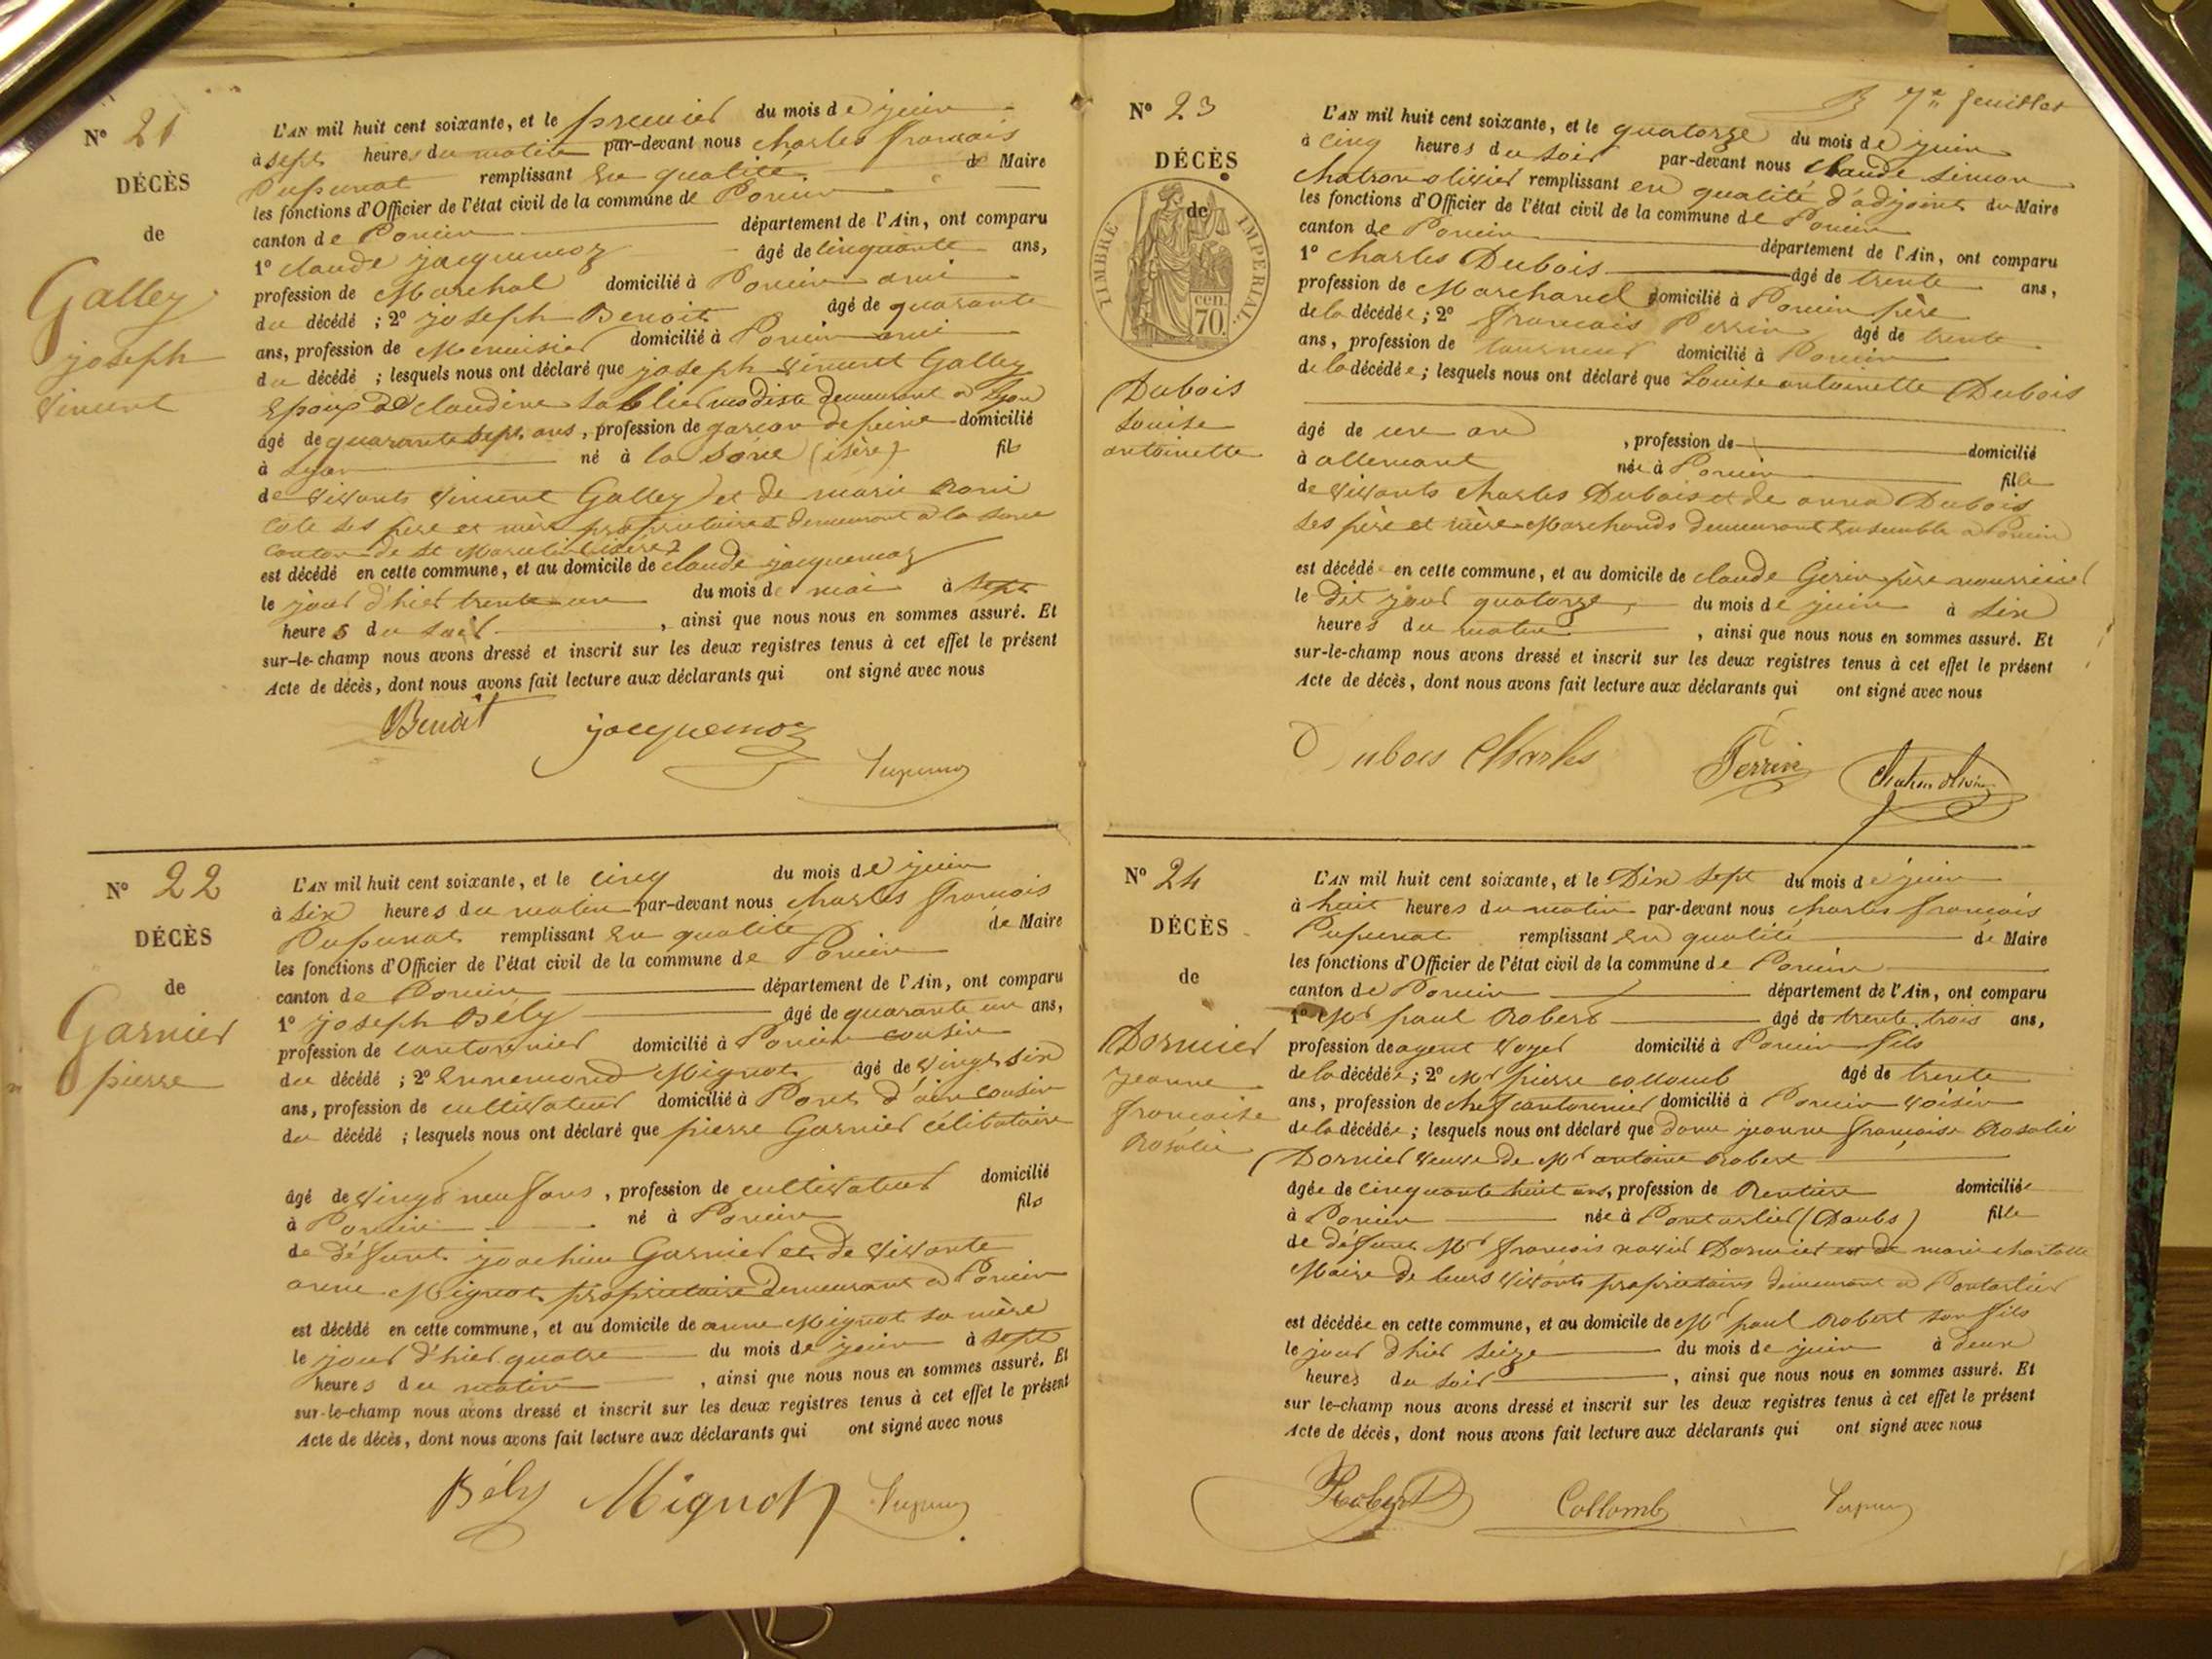 N° 21
DÉCÈS
de
Galley
joseph
Vincent
L'AN mil huit cent soixante, et le premier du mois de juin
à sept heures du matin par-devant nous charles françois
Pupunat remplissant En qualité de Maire
les fonctions d'Officier de l'état civil de la commune de Poncin
canton de Poncin département de l'Ain, ont comparu
1° claude jacquemoz âgé de cinquante ans,
profession de Marchal domicilié à Poncin ami
du décédé ; 2° joseph Benoit âgé de quarante
ans, profession de Menuisier domicilié à Poncin ami
du décédé ; lesquels nous ont déclaré que joseph Vincent Galley
Epoux de claudine Sablier modiste demeurant à Lyon
âgé de quarante sept ans, profession de garçon de peine domicilié
à Lyon né à la Sône (isère) fils
de vivants Vincent Galley et de marie
ses père et mère propriétaires demeurant à la Sone
canton de St Marcelin (isère)
est décédé en cette commune, et au domicile de claude jacquemoz
le jour d'hier trente un du mois de mai à sept
heures du soir , ainsi que nous nous en sommes assuré. Et
sur-le-champ nous avons dressé et inscrit sur les deux registres tenus à cet effet le présent
Acte de décès, dont nous avons fait lecture aux déclarants qui ont signé avec nous
Benoit jacquemoz Pupunat
N° 22
DÉCÈS
de
Garnier
pierre
L'AN mil huit cent soixante, et le cinq du mois de juin
à six heures du matin par-devant nous charles françois
Pupunat remplissant En qualité de Maire
les fonctions d'Officier de l'état civil de la commune de Poncin
canton de Poncin département de l'Ain, ont comparu
1° joseph Bély âgé de quarante un ans,
profession de cantonnier domicilié à Poncin cousin
du décédé ; 2° Ennemond Mignot âgé de vingt six
ans, profession de cultivateur domicilié à Pont d'ain cousin
du décédé ; lesquels nous ont déclaré que pierre Garnier célibataire
âgé de vingt neuf ans, profession de cultivateur domicilié
à Poncin né à Poncin fils
de défunt joachim Garnier et de vivante
anne Mignot propriétaire demeurant à Poncin
est décédé en cette commune, et au domicile de anne Mignot sa mère
le jour d'hier quatre du mois de juin à sept
heures du matin , ainsi que nous nous en sommes assuré. Et
sur-le-champ nous avons dressé et inscrit sur les deux registres tenus à cet effet le présent
Acte de décès, dont nous avons fait lecture aux déclarants qui ont signé avec nous
Bély Mignot Pupunat
7e feuillet
N° 23
DÉCÈS
de
TIMBRE IMPERIAL
70 cen.
Dubois
Louise
antoinette
L'AN mil huit cent soixante, et le quatorze du mois de juin
à cinq heures du soir par-devant nous Claude Simon
Chatron olivier remplissant en qualité d'adjoint du Maire
les fonctions d'Officier de l'état civil de la commune de Poncin
canton de Poncin département de l'Ain, ont comparu
1° charles Dubois âgé de trente ans,
profession de Marchand domicilié à Poncin père
de la décédée ; 2° françois Perrin âgé de trente
ans, profession de tourneur domicilié à Poncin
de la décédée ; lesquels nous ont déclaré que Louise antoinette Dubois
âgé de un an , profession de domicilié
à allemant née à Poncin fille
de vivants charles Dubois et de anna Dubois
ses père et mère Marchands demeurant Ensemble à Poncin
est décédé en cette commune, et au domicile de claude Gerin père nourricier
le dit jour quatorze du mois de juin à six
heures du matin , ainsi que nous nous en sommes assuré. Et
sur-le-champ nous avons dressé et inscrit sur les deux registres tenus à cet effet le présent
Acte de décès, dont nous avons fait lecture aux déclarants qui ont signé avec nous
Dubois Charles Perrin Chatron olivier
N° 24
DÉCÈS
de
Dornier
jeanne
françoise
Rosalie
L'AN mil huit cent soixante, et le Dix sept du mois de juin
à huit heures du matin par-devant nous charles françois
Pupunat remplissant En qualité de Maire
les fonctions d'Officier de l'état civil de la commune de Poncin
canton de Poncin département de l'Ain, ont comparu
1° Mr paul Robert âgé de trente trois ans,
profession de agent voyer domicilié à Poncin fils
de la décédée ; 2° Mr pierre collomb âgé de trente
ans, profession de chef cantonnier domicilié à Poncin voisin
de la décédée ; lesquels nous ont déclaré que Dame jeanne françoise Rosalie
Dornier veuve de Mr antoine Robert
âgée de cinquante huit ans, profession de Rentière domiciliée
à Poncin née à Pontarlier (Doubs) fille
de défunt Mr françois xavier Dornier et de marie charlotte
Maire de leurs vivants propriétaires demeurant à Pontarlier
est décédée en cette commune, et au domicile de Mr paul Robert son fils
le jour d'hier seize du mois de juin à deux
heures du soir , ainsi que nous nous en sommes assuré. Et
sur le-champ nous avons dressé et inscrit sur les deux registres tenus à cet effet le présent
Acte de décès, dont nous avons fait lecture aux déclarants qui ont signé avec nous
Robert Collomb Pupunat